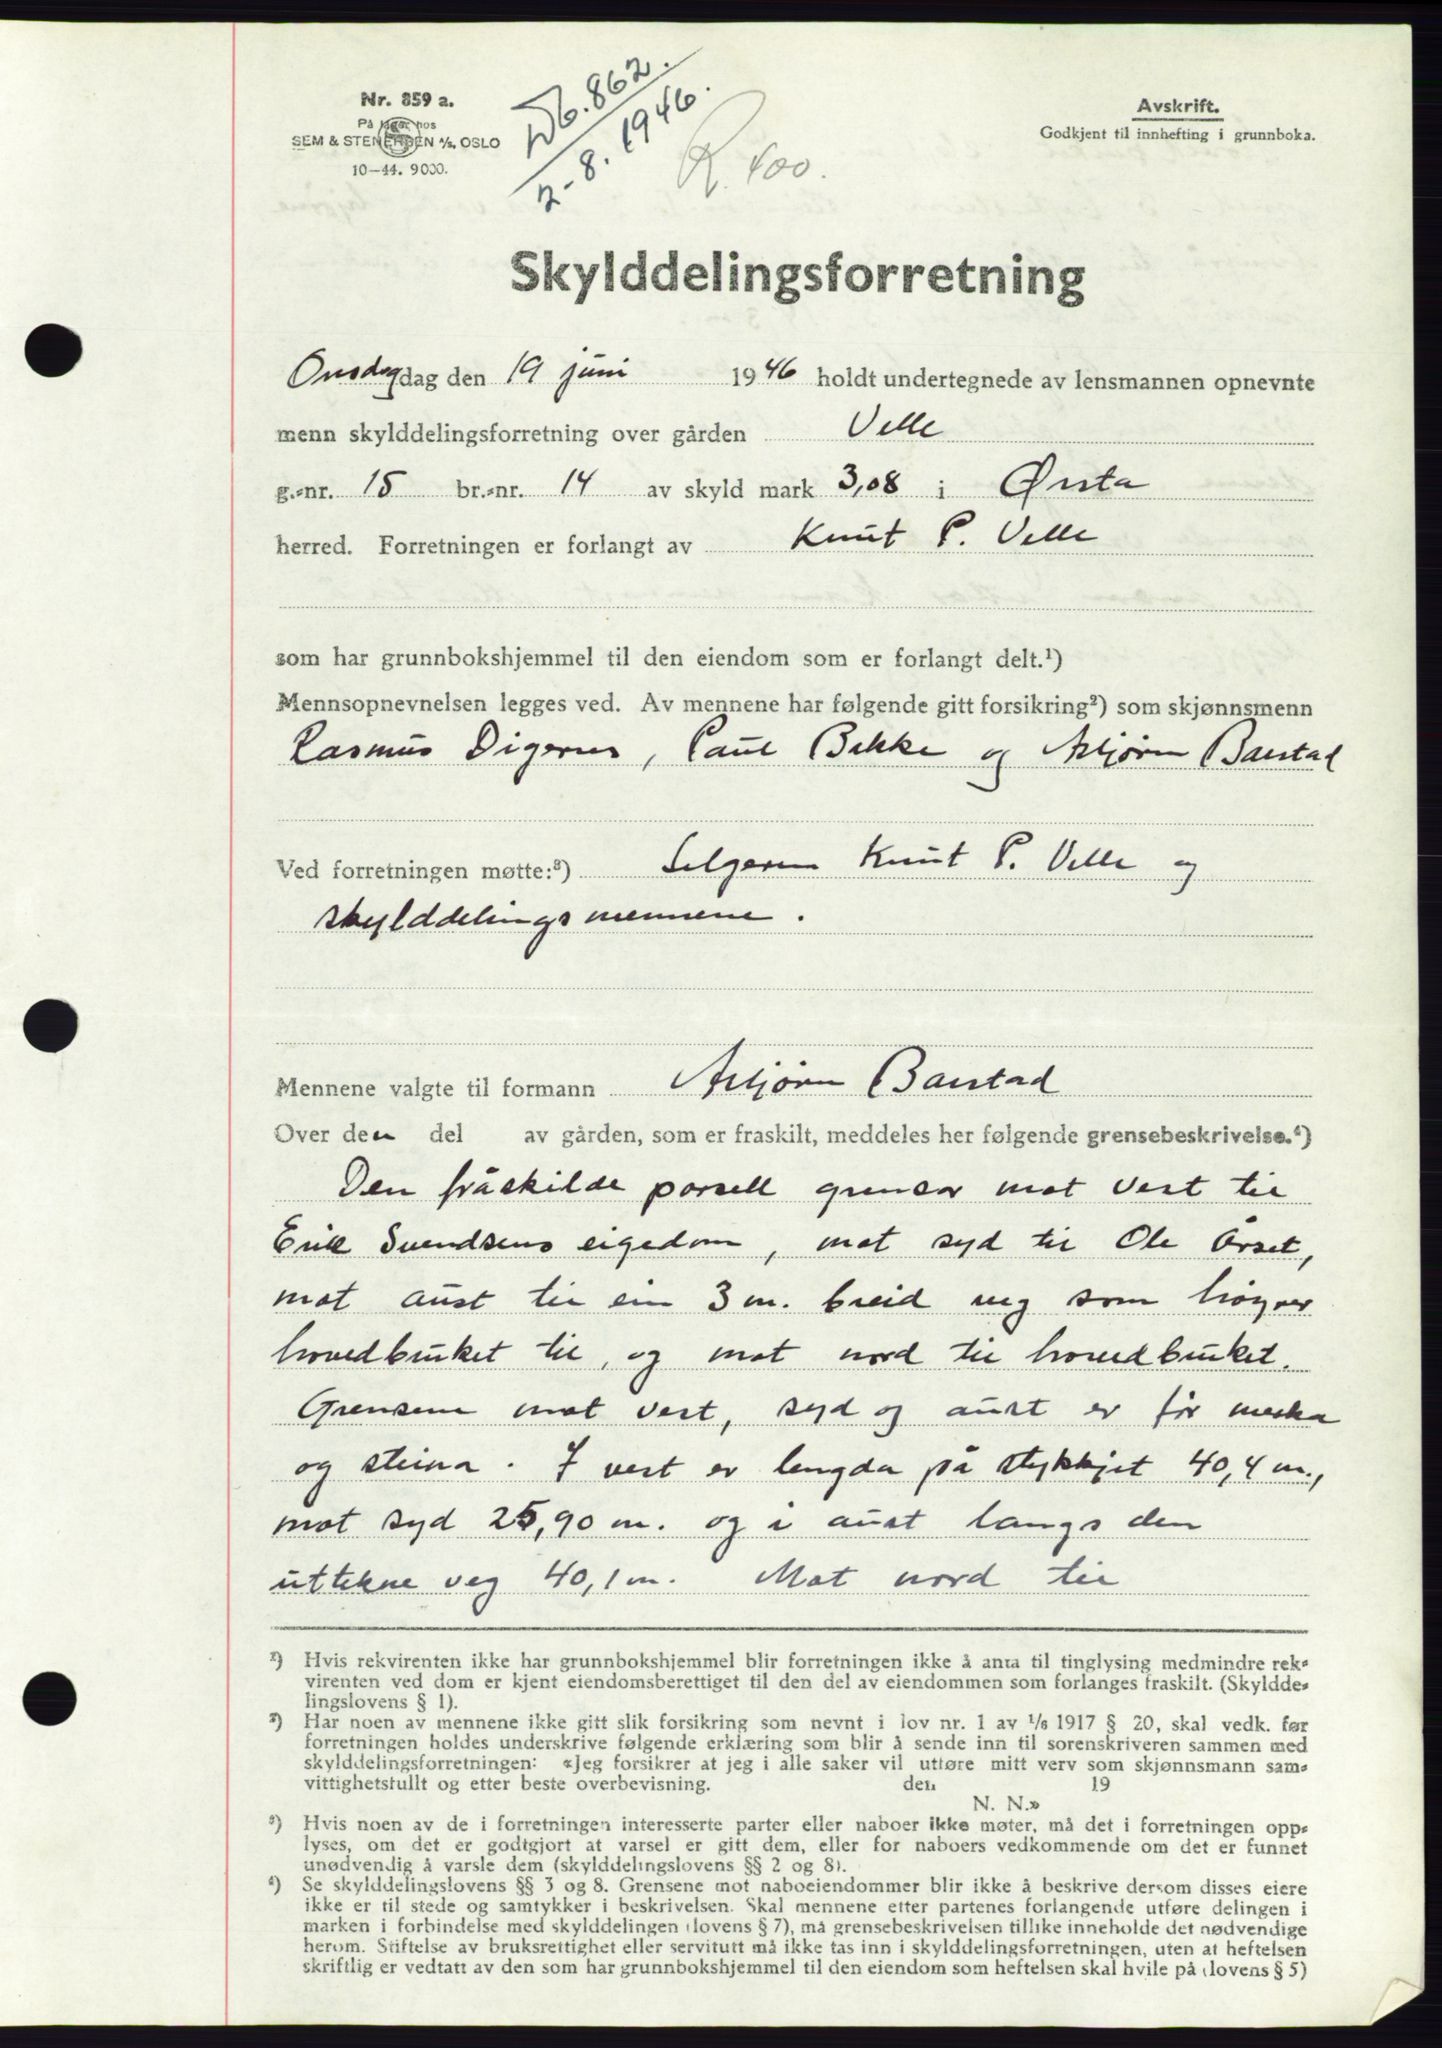 Nr. 859 a.
På lager hos
SEM & STENERSEN A/S, OSLO
10-44. 9000.
Db. 862.
2-8. 1946.
R. 400.
Avskrift.
Godkjent til innhefting i grunnboka.
Skylddelingsforretning
Onsdag dag den 19 juni 1946 holdt undertegnede av lensmannen opnevnte
menn skylddelingsforretning over gården Velle
g.-nr. 15 br.-nr. 14 av skyld mark 3,08 i Ørsta
herred. Forretningen er forlangt av Knut P. Velle
som har grunnbokshjemmel til den eiendom som er forlangt delt.¹)
Mennsopnevnelsen legges ved. Av mennene har følgende gitt forsikring²) som skjønnsmenn
Rasmus Digernes, Paul Bakke og Asbjørn Barstad
Ved forretningen møtte:³) Selgeren Knut P. Velle og
skylddelingsmennene.
Mennene valgte til formann Asbjørn Barstad
Over den del av gården, som er fraskilt, meddeles her følgende grensebeskrivelse.⁴)
Den fråskilde parsell grensar mot vest til
Erik Svendsens eigedom, mot syd til Ole Årset,
mot aust til ein 3 m. breid veg som høyrer
hovedbruket til, og mot nord til hovedbruket.
Grensene mot vest, syd og aust er før merka
og steina. I vest er lengda på stykkjet 40,4 m.,
mot syd 25,90 m. og i aust langs den
uttekne veg 40,1 m. Mot nord til
¹) Hvis rekvirenten ikke har grunnbokshjemmel blir forretningen ikke å anta til tinglysing medmindre rek-
virenten ved dom er kjent eiendomsberettiget til den del av eiendommen som forlanges fraskilt. (Skyldde-
lingslovens § 1).
²) Har noen av mennene ikke gitt slik forsikring som nevnt i lov nr. 1 av 1/6 1917 § 20, skal vedk. før
forretningen holdes underskrive følgende erklæring som blir å sende inn til sorenskriveren sammen med
skylddelingsforretningen: «Jeg forsikrer at jeg i alle saker vil utføre mitt verv som skjønnsmann sam-
vittighetsfullt og etter beste overbevisning. den 19
N. N.»
³) Hvis noen av de i forretningen interesserte parter eller naboer ikke møter, må det i forretningen opp-
lyses, om det er godtgjort at varsel er gitt dem, eller for naboers vedkommende om det er funnet
unødvendig å varsle dem (skylddelingslovens §§ 2 og 8).
⁴) Se skylddelingslovens §§ 3 og 8. Grensene mot naboeiendommer blir ikke å beskrive dersom disses eiere
ikke er til stede og samtykker i beskrivelsen. Skal mennene etter partenes forlangende utføre delingen i
marken i forbindelse med skylddelingen (lovens § 7), må grensebeskrivelsen tillike inneholde det nødvendige
herom. Stiftelse av bruksrettighet eller servitutt må ikke tas inn i skylddelingsforretningen, uten at heftelsen
skriftlig er vedtatt av den som har grunnbokshjemmel til den eiendom som heftelsen skal hvile på (lovens § 5)